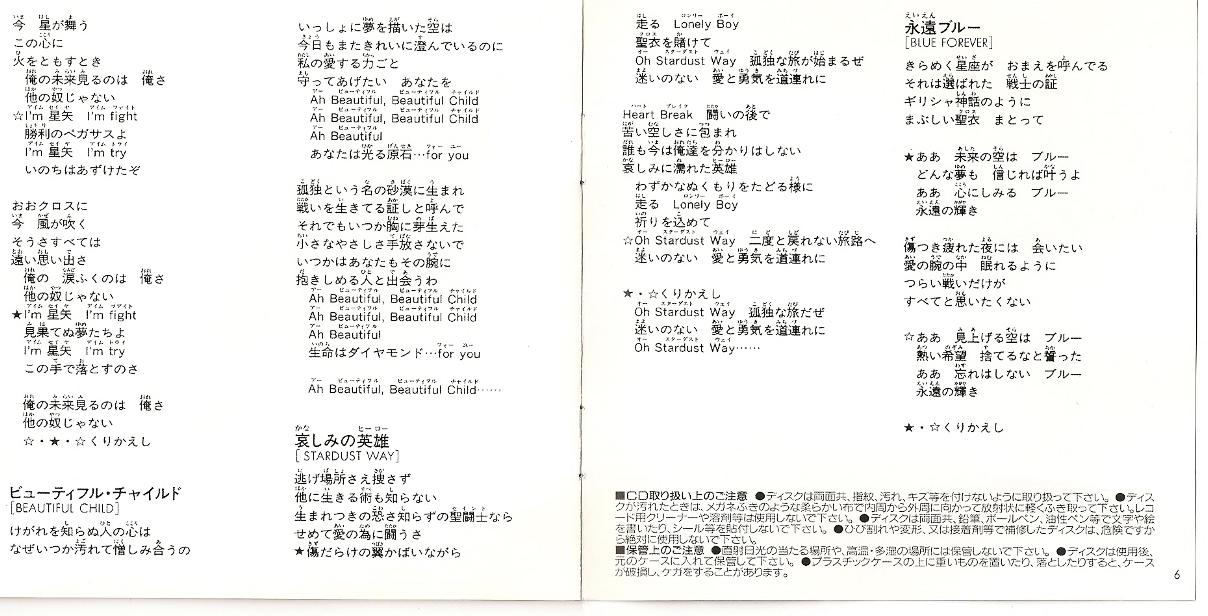 今 星が舞う
この心に
火をともすとき
俺の未来見るのは 俺さ
他の奴じゃない
☆I'm 星矢 I'm fight
勝利のペガサスよ
I'm 星矢 I'm try
いのちはあずけたぞ
おおクロスに
今 風が吹く
そうさすべては
遠い思い出さ
俺の 涙ふくのは 俺さ
他の奴じゃない
★I'm 星矢 I'm fight
見果てぬ夢たちよ
I'm 星矢 I'm try
この手で落とすのさ
俺の未来見るのは 俺さ
他の奴じゃない
☆・★・☆くりかえし
ビューティフル・チャイルド
[BEAUTIFUL CHILD]
けがれを知らぬ人の心は
なぜいつか汚れて憎しみ合うの
いっしょに夢を描いた空は
今日もまたきれいに澄んでいるのに
私の愛する力ごと
守ってあげたい あなたを
Ah Beautiful, Beautiful Child
Ah Beautiful, Beautiful Child
Ah Beautiful
あなたは光る原石…for you
孤独という名の砂漠に生まれ
戦いを生きてる証しと呼んで
それでもいつか胸に芽生えた
小さなやさしさ手放さないで
いつかはあなたもその腕に
抱きしめる人と出会うわ
Ah Beautiful, Beautiful Child
Ah Beautiful, Beautiful Child
Ah Beautiful
生命はダイヤモンド…for you
Ah Beautiful, Beautiful Child……
哀しみの英雄
[STARDUST WAY]
逃げ場所さえ捜さず
他に生きる術も知らない
生まれつきの恐さ知らずの聖闘士なら
せめて愛の為に闘うさ
★傷だらけの翼かばいながら
走る Lonely Boy
聖衣を賭けて
Oh Stardust Way 孤独な旅が始まるぜ
迷いのない 愛と勇気を道連れに
Heart Break 闘いの後で
苦い空しさに包まれ
誰も今は俺達を分かりはしない
哀しみに濡れた英雄
わずかなぬくもりをたどる様に
走る Lonely Boy
祈りを込めて
☆Oh Stardust Way 二度と戻れない旅路へ
迷いのない 愛と勇気を道連れに
★・☆くりかえし
Oh Stardust Way 孤独な旅だぜ
迷いのない 愛と勇気を道連れに
Oh Stardust Way……
永遠ブルー
[BLUE FOREVER]
きらめく星座が おまえを呼んでる
それは選ばれた 戦士の証
ギリシャ神話のように
まぶしい聖衣 まとって
★ああ 未来の空は ブルー
どんな夢も 信じれば叶うよ
ああ 心にしみる ブルー
永遠の輝き
傷つき疲れた夜には 会いたい
愛の腕の中 眠れるように
つらい戦いだけが
すべてと思いたくない
☆ああ 見上げる空は ブルー
熱い希望 捨てるなと誓った
ああ 忘れはしない ブルー
永遠の輝き
★・☆くりかえし
■CD取り扱い上のご注意 ●ディスクは両面共、指紋、汚れ、キズ等を付けないように取り扱って下さい。●ディス
クが汚れたときは、メガネふきのような柔らかい布で内周から外周に向かって放射状に軽くふき取って下さい。レコ
ード用クリーナーや溶剤等は使用しないで下さい。●ディスクは両面共、鉛筆、ボールペン、油性ペン等で文字や絵
を書いたり、シール等を貼付しないで下さい。●ひび割れや変形、又は接着剤等で補修したディスクは、危険ですか
ら絶対に使用しないで下さい。
■保管上のご注意 ●直射日光の当たる場所や、高温・多湿の場所には保管しないで下さい。●ディスクは使用後、
元のケースに入れて保管して下さい。●プラスチックケースの上に重いものを置いたり、落としたりすると、ケース
が破損し、ケガをすることがあります。
6